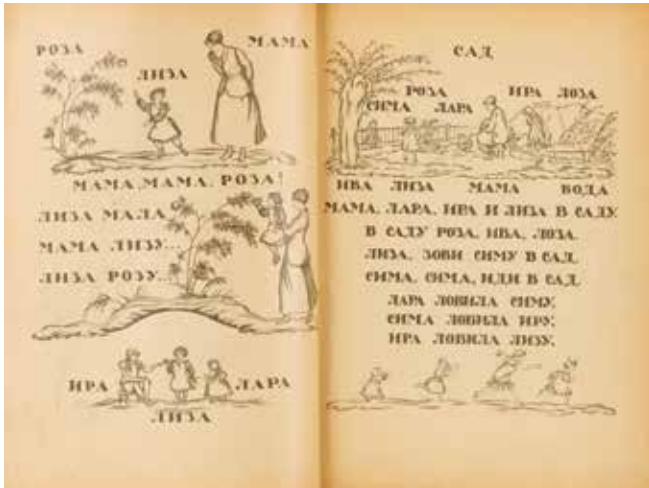 РОЗА
МАМА
ЛИЗА
МАМА, МАМА, РОЗА!
ЛИЗА МАЛА
МАМА ЛИЗУ...
ЛИЗА РОЗУ...
ИРА
ЛАРА
ЛИЗА
САД
РОЗА ИРА ЛОЗА
СИМА ЛАРА
ИВА ЛИЗА МАМА ВОДА
МАМА, ЛАРА, ИРА И ЛИЗА В САДУ.
В САДУ РОЗА, ИВА, ЛОЗА.
ЛИЗА, ЗОВИ СИМУ В САД.
СИМА, СИМА, ИДИ В САД.
ЛАРА ЛОВИЛА СИМУ,
СИМА ЛОВИЛА ИРУ,
ИРА ЛОВИЛА ЛИЗУ.